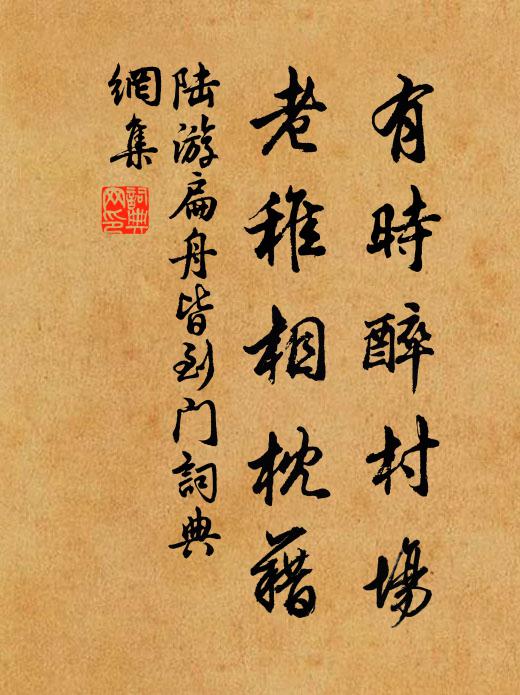 有時醉村場
老稚相枕藉
陸游扁舟皆到門詞典
網集
詞典
网印